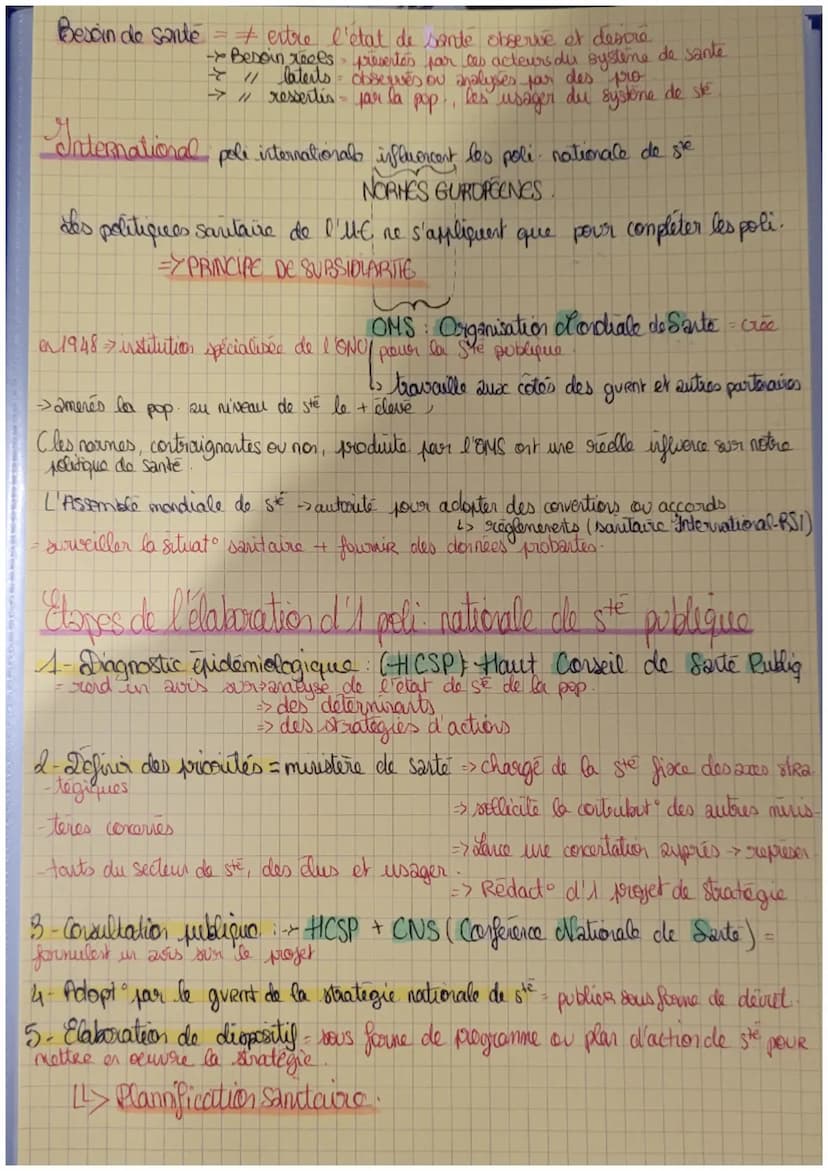 Besoin de santé = ≠ entre l'état de santé observé et désiré
-> Besoin réels = présentés par les acteurs du système de santé
-> " latents = observés ou analysés par des pro
-> " ressentis = par la pop., les usager du système de sté
International poli internationals influencent les poli. nationale de sté
NORMES EUROPÉENES.
Les politiques sanitaire de l'UE, ne s'appliquent que pour compléter les poli.
=> PRINCIPE DE SUBSIDIARTIE
OMS : Organisation Mondiale de Sante = crée
en 1948 => institution spécialisée de l'ONU pour la Sté publique
↳ travaille aux côtés des gvent et autres partenaires
-> amenés la pop. au niveau de sté le + élevé
(les normes, contraignantes ou non, produite par l'OMS ont une réelle influence sur notre
politique de santé.
L'Assemblé mondiale de sté -> autorité pour adopter des conventions ou accords
↳ règlements (sanitaire International-RSI)
= surveiller la situat° sanitaire + fournir des données probantes.
Etapes de l'élaboration d'1 poli. nationale de sté publique
1 - Diagnostic épidémiologique : (HCSP) = Haut Conseil de Santé Publiq
= rend un avis sur -> analyse de l'état de sté de la pop.
=> des déterminants
=> des stratégies d'actions
2 - Définir des priorités = ministère de santé => chargé de la sté fixe des axes stra
-tégiques
=> sollicite la contribut° des autres minis
-tères concernés
=> Lance une concertation auprès -> représen
-tants du secteur de sté, des élus et usager.
=> Rédact° d'1 projet de stratégie
3 - Consultation publique : -> HCSP + CNS (Conférence Nationale de Santé) =
formulent un avis sur le projet
4 - Adopt° par le gvent de la stratégie nationale de sté = publiée sous forme de décret.
5 - Elaboration de dispositif = sous forme de programme ou plan d'action de sté pour
mettre en oeuvre la stratégie.
↳> Plannification sanitaire.